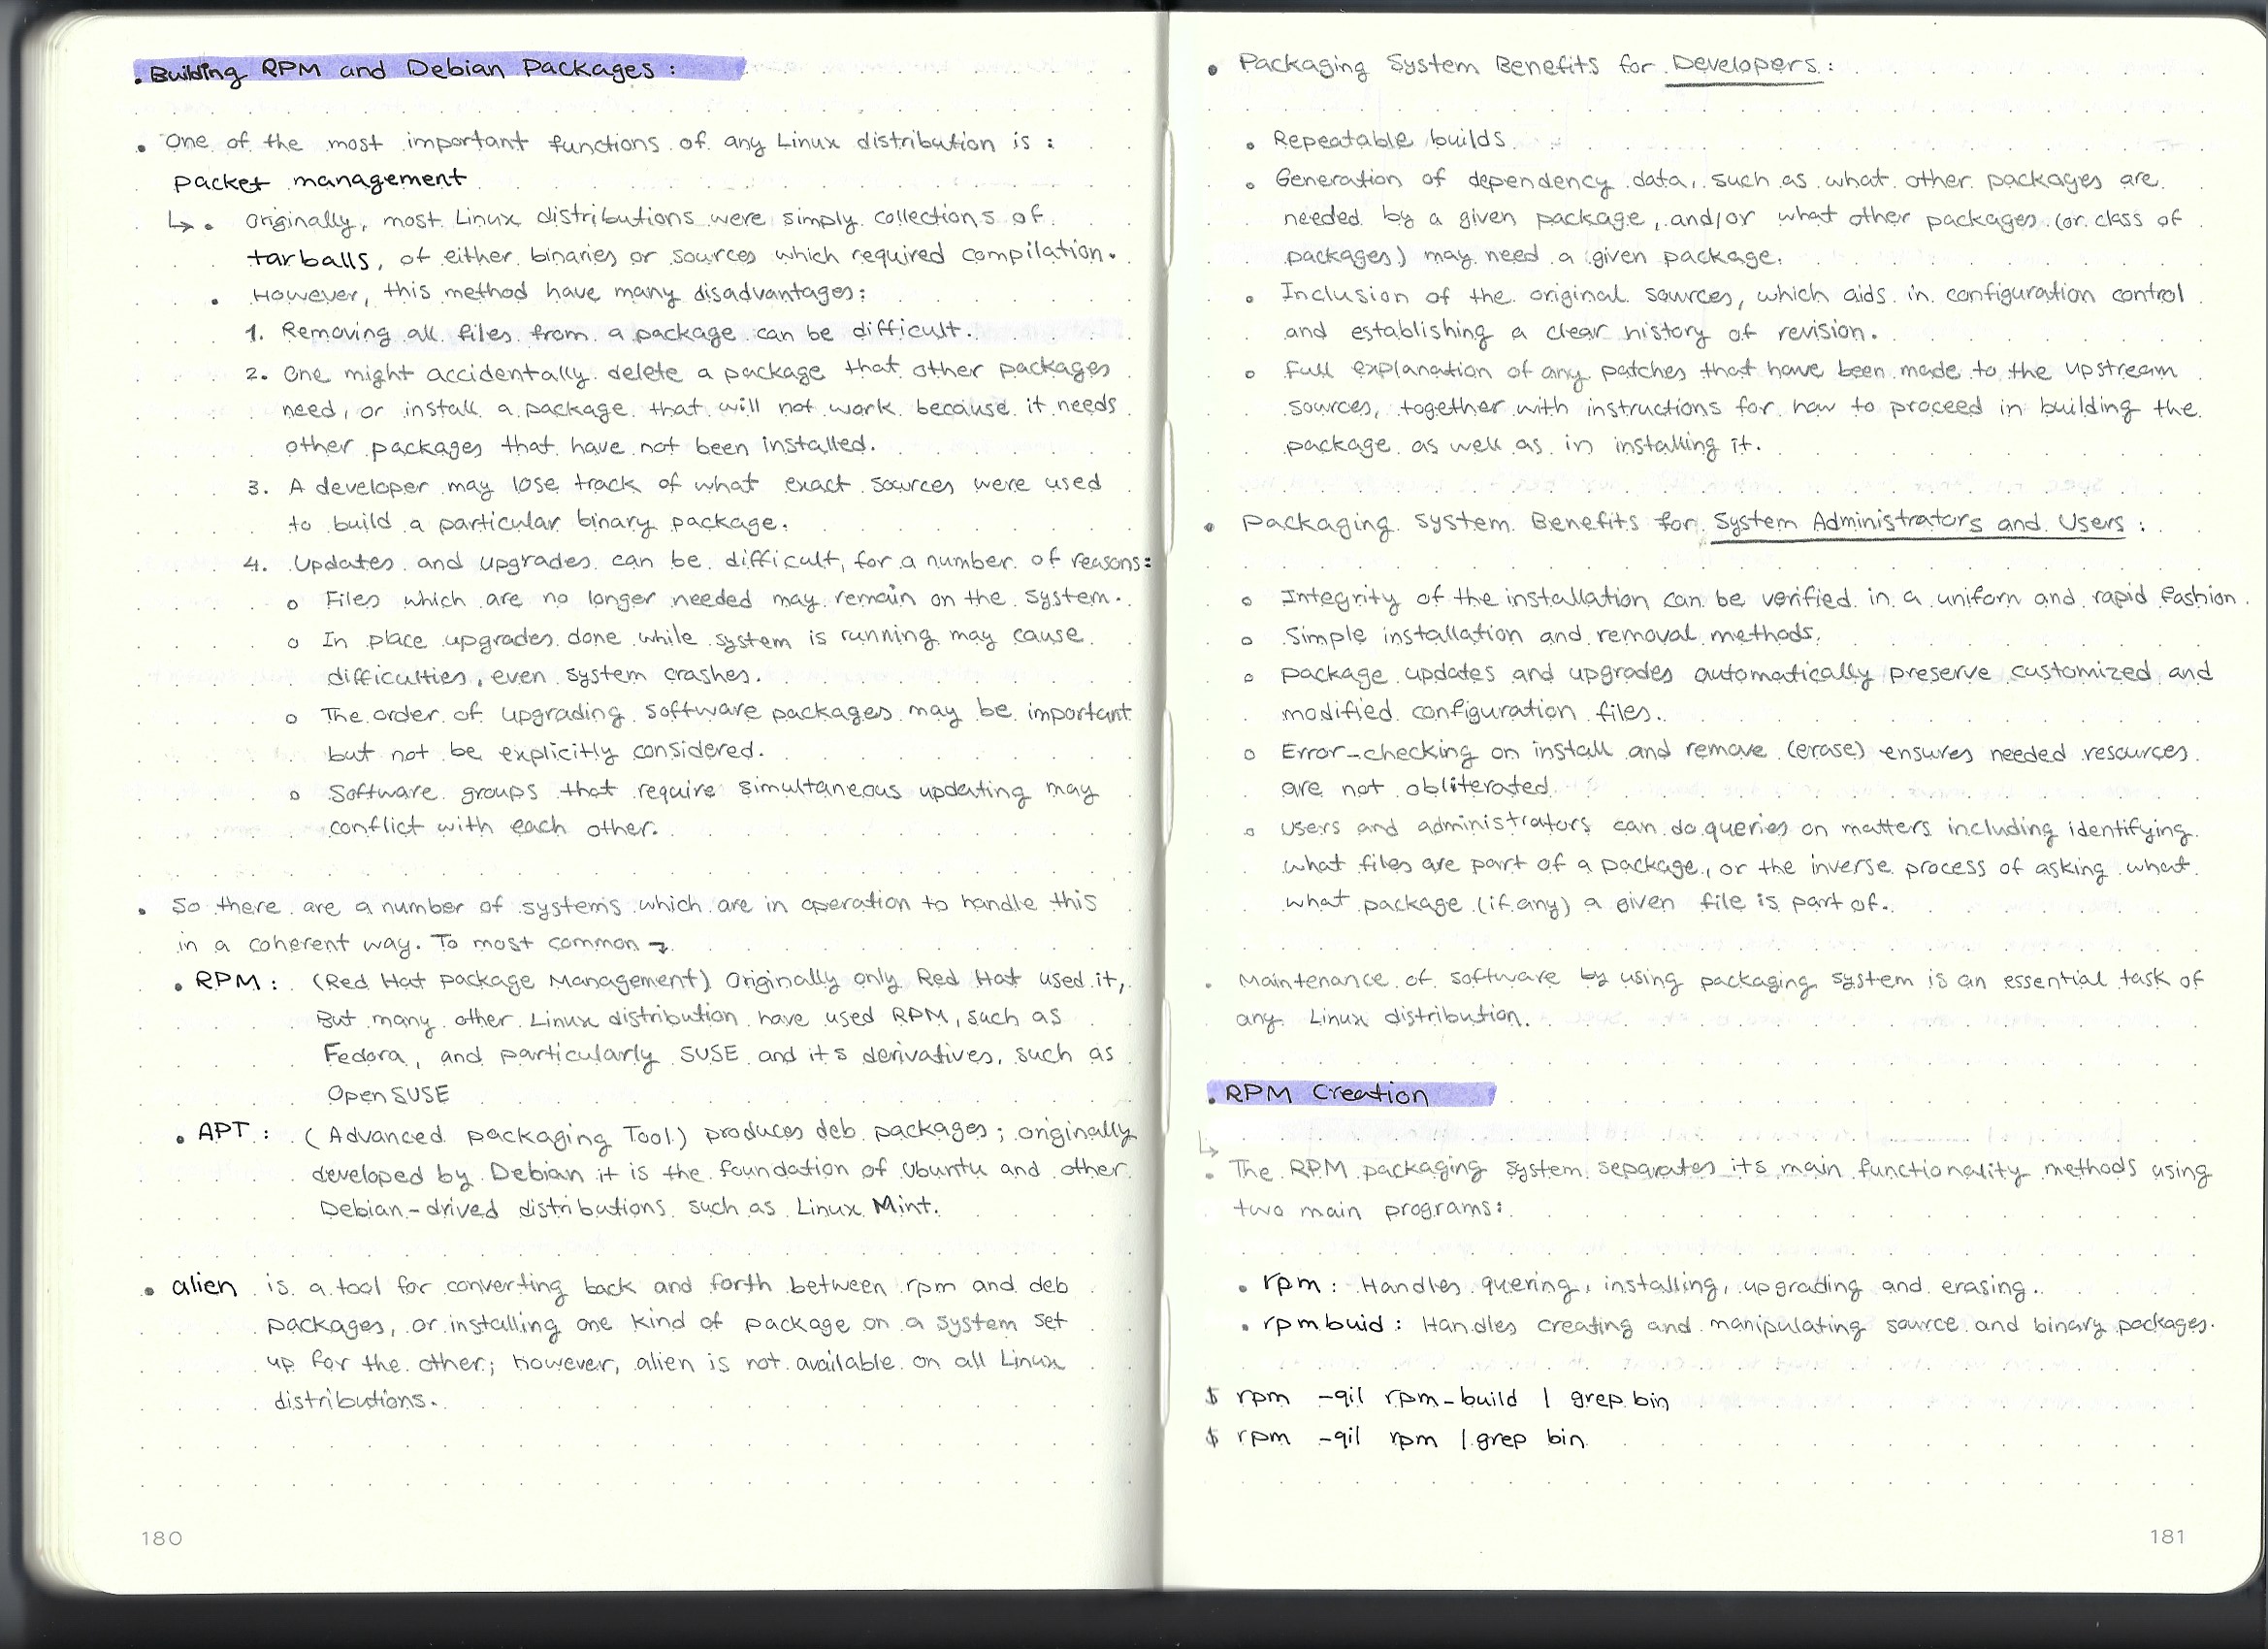 . Building RPM and Debian Packages :
. One of the most important functions of any Linux distribution is :
packet management
↳ . Originally, most Linux distributions were simply collections of
tarballs, of either binaries or sources which required compilation.
. However, this method have many disadvantages:
1. Removing all files from a package can be difficult.
2. One might accidentally delete a package that other packages
need, or install a package that will not work because it needs
other packages that have not been installed.
3. A developer may lose track of what exact sources were used
to build a particular binary package.
4. Updates and upgrades can be difficult, for a number of reasons:
o Files which are no longer needed may remain on the system.
o In place upgrades done while system is running may cause
difficulties, even system crashes.
o The order of upgrading software packages may be important
but not be explicitly considered.
o Software groups that require simultaneous updating may
conflict with each other.
. So there are a number of systems which are in operation to handle this
in a coherent way. To most common ↴
. RPM : (Red Hat Package Management) Originally only Red Hat used it,
But many other Linux distribution have used RPM, such as
Fedora, and particularly SUSE and its derivatives, such as
OpenSUSE
. APT : (Advanced Packaging Tool) produces deb packages; originally
developed by Debian it is the foundation of Ubuntu and other
Debian-drived distributions such as Linux Mint.
. alien is a tool for converting back and forth between rpm and deb
packages, or installing one kind of package on a system set
up for the other; however, alien is not available on all Linux
distributions.
180
. Packaging System Benefits for Developers :
o Repeatable builds
o Generation of dependency data, such as what other packages are
needed by a given package, and/or what other packages (or class of
packages) may need a given package.
o Inclusion of the original sources, which aids in configuration control
and establishing a clear history of revision.
o Full explanation of any patches that have been made to the upstream
sources, together with instructions for how to proceed in building the
package as well as in installing it.
. Packaging System Benefits for System Administrators and Users :
o Integrity of the installation can be verified in a uniform and rapid fashion.
o Simple installation and removal methods.
o Package updates and upgrades automatically preserve customized and
modified configuration files.
o Error-checking on install and remove (erase) ensures needed resources
are not obliterated.
o Users and administrators can do queries on matters including identifying
what files are part of a package, or the inverse process of asking what
what package (if any) a given file is part of.
. Maintenance of software by using packaging system is an essential task of
any Linux distribution.
. RPM Creation
↳
. The RPM packaging system separates its main functionality methods using
two main programs:
. rpm : Handles quering, installing, upgrading and erasing.
. rpmbuid : Handles creating and manipulating source and binary packages.
$ rpm -qil rpm-build | grep bin
$ rpm -qil rpm | grep bin
181